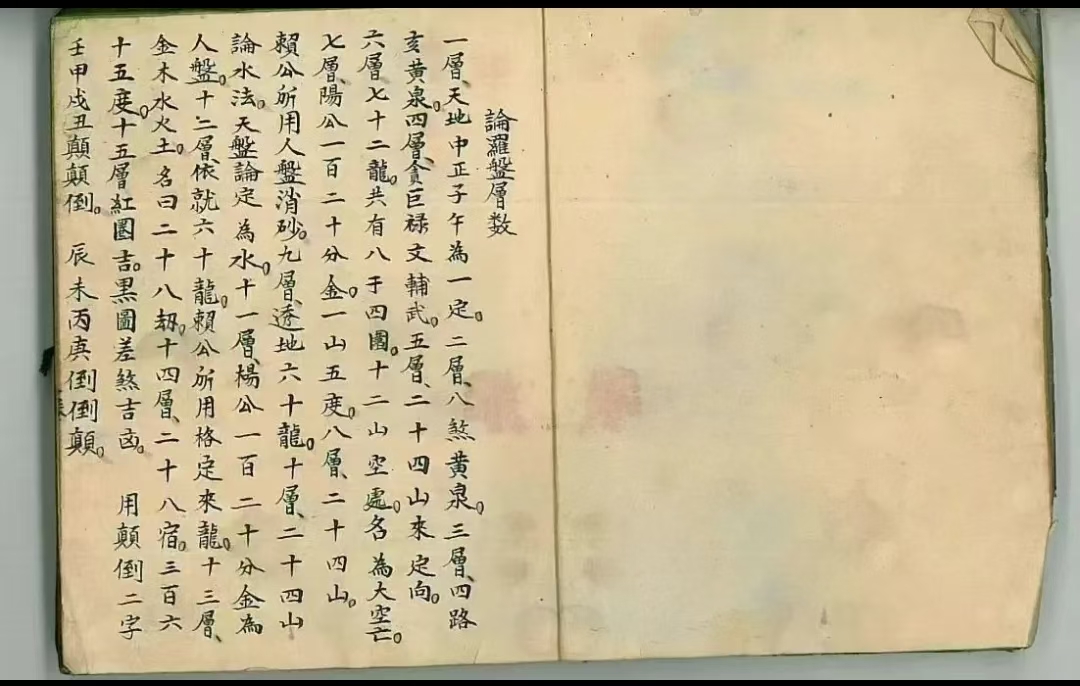 論羅盤層數
一層、天地中正子午為一定。二層、八煞黄泉。三層、四路
亥黄泉。四層、貪巨禄文輔武。五層、二十四山來定向。
六層、七十二龍。共有八于四圍。十二山空處。名為大空亡。
七層、陽公一百二十分金。一山五度。八層、二十四山。
賴公所用人盤消砂。九層、透地六十龍。十層、二十四山
論水法。天盤論定為水。十一層、楊公一百二十分金為
人盤。十二層、依就六十龍。賴公所用格定來龍。十三層、
金木水火土。名曰二十八刼。十四層、二十八宿。三百六
十五度。十五層紅圈吉。黑圖差煞吉凶。 用顛倒二字
壬甲戌丑顛顛倒。 辰未丙庚倒倒顛。